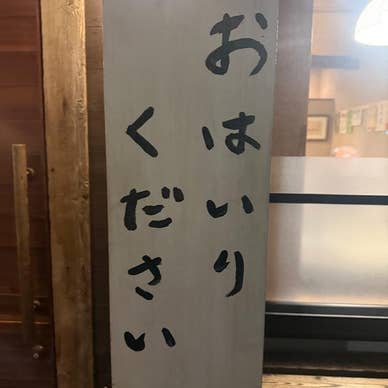 おはいり
ください